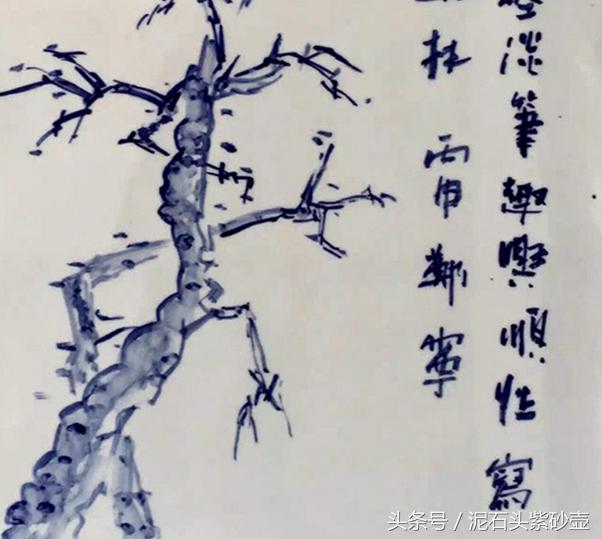 淡筆趣興順性寫
林 丙申 鄭寧
头条号／泥石头紫砂壶